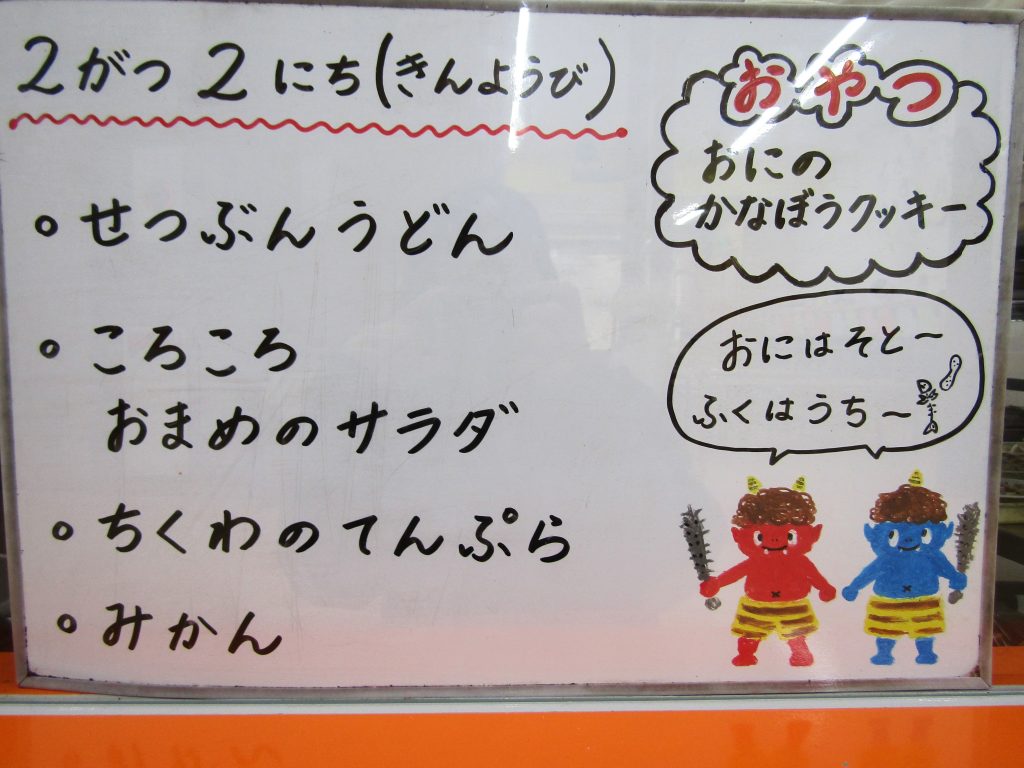 2がつ2にち(きんようび)
。せつぶんうどん
。ころころ
おまめのサラダ
。ちくわのてんぷら
。みかん
おやつ
おにの
かなぼうクッキー
おにはそと～
ふくはうち～